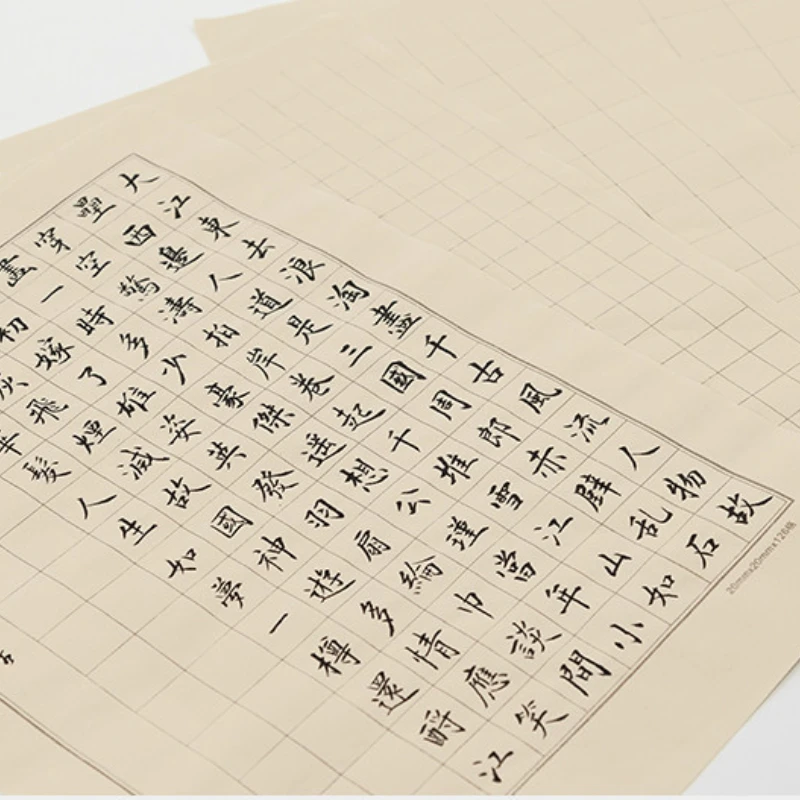 大江東去浪淘盡千古風流人物故
壘西邊人道是三國周郎赤壁亂石
穿空驚濤拍岸卷起千堆雪江山如
畫一時多少豪傑遙想公瑾當年小
初嫁了雄姿英發羽扇綸巾談間
灰飛煙滅故國神遊多情應笑
華髮人生如夢一樽還酹江
20mmx20mmx126格